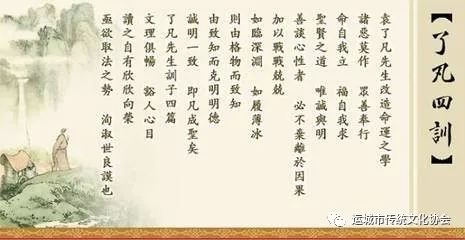 【了凡四訓】
袁了凡先生改造命運之學
諸惡莫作 眾善奉行
命自我立 福自我求
聖賢之道 唯誠與明
善談心性者 必不棄離於因果
加以戰戰兢兢
如臨深淵 如履薄冰
則由格物而致知
由致知而克明明德
誠明一致 即凡成聖矣
了凡先生訓子四篇
文理俱暢 豁人心目
讀之自有欣欣向榮
亟欲取法之勢 洵淑世良謨也
运城市传统文化协会